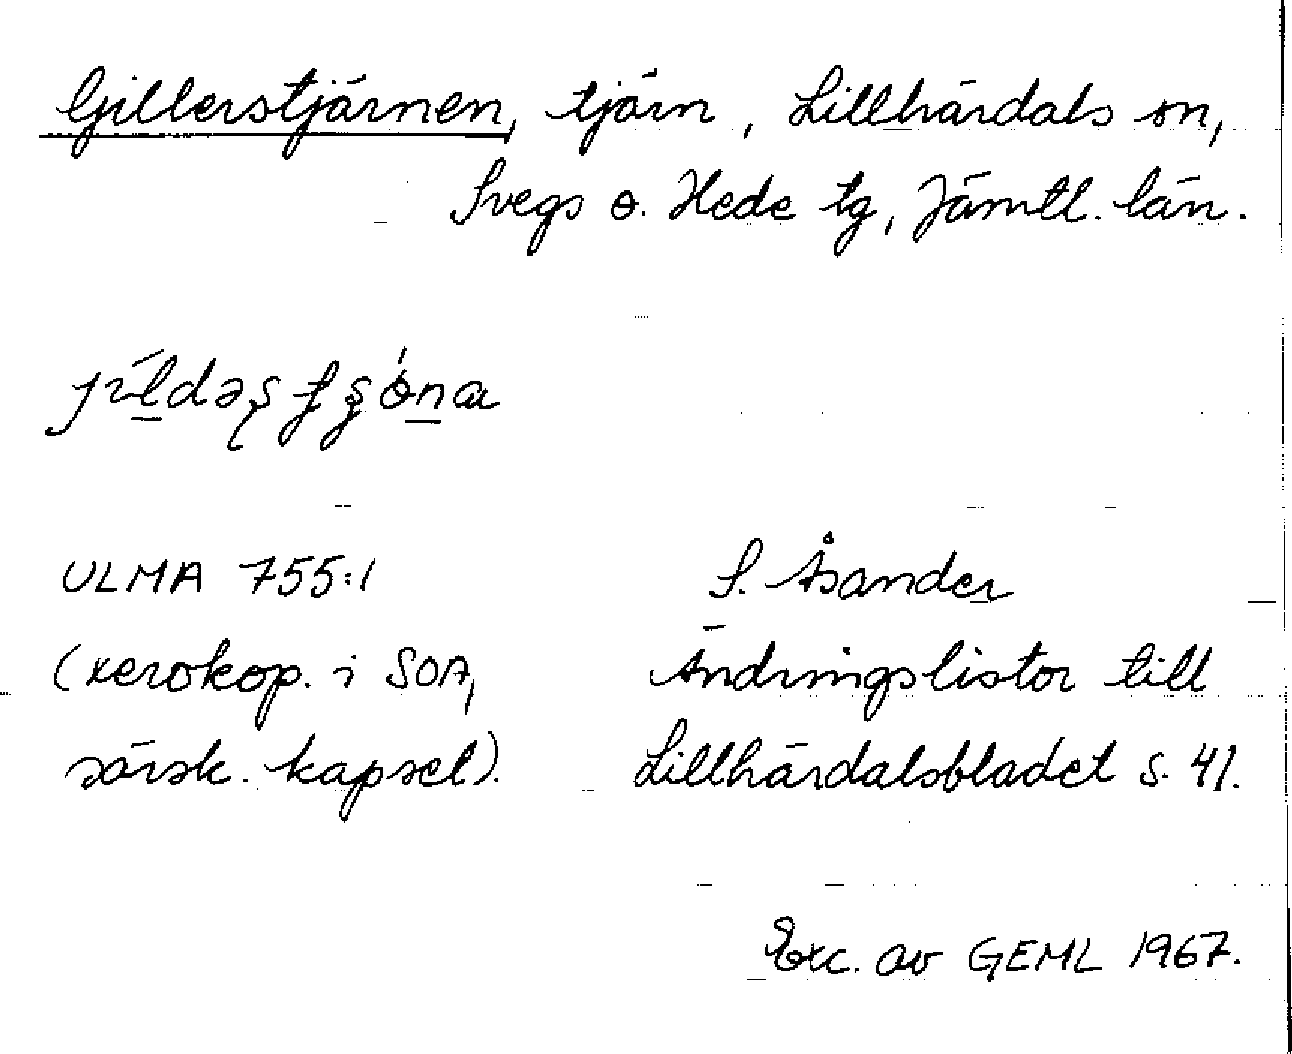 Gillerstjärnen, tjärn, Lillhärdals sn,
Svegs o. Hede tg, Jämtl. län.
ULMA 755:1
(xerokop. i SOA,
särsk. kapsel).
S. Åsander
Ändringslistor till
Lillhärdalsbladet s. 41.
Exc. av GEML 1967.